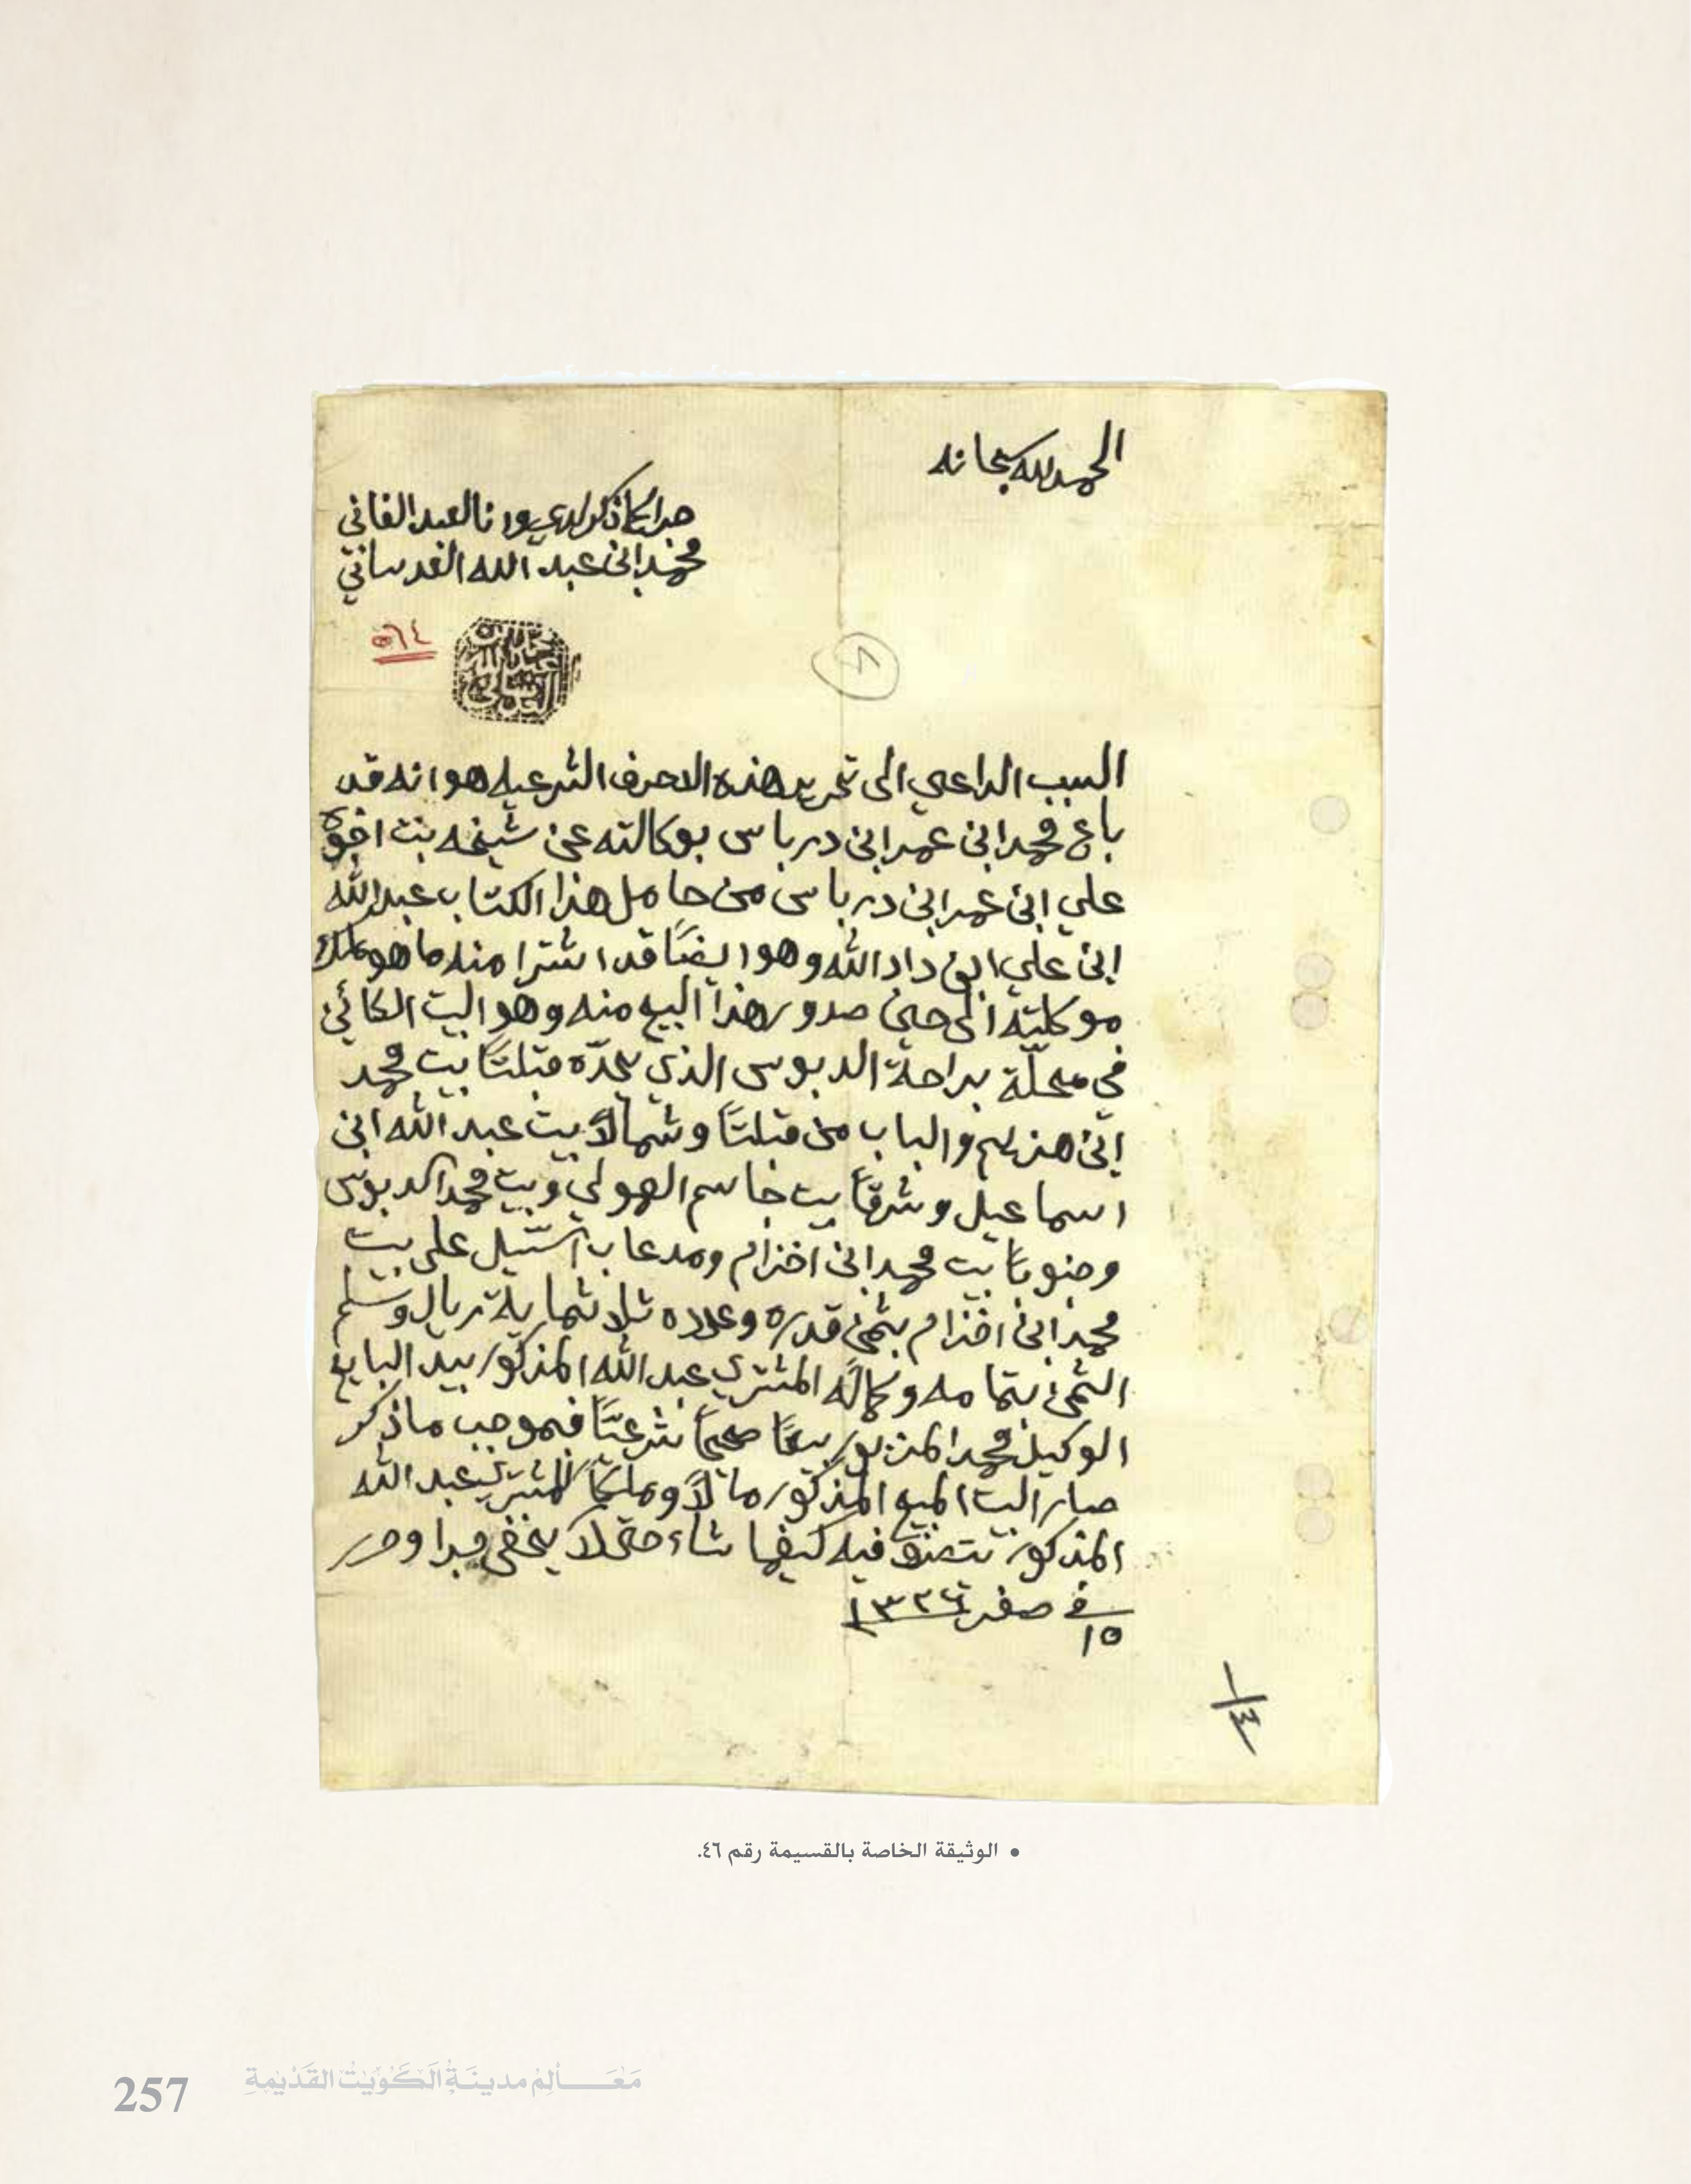 الحمد لله سبحانه
جرا كما ذكر لدي وانا العبد الفاني
محمد ابن عبد الله العدساني
٥٦٤
٨
السبب الداعي الى تحرير هذه الاحرف الشرعيه هو انه قد
باع محمد ابن عمر ابن درباس بوكالته عن شيخه بنت اخوه
علي ابن عمر ابن درباس من حامل هذا الكتاب عبد الله
ابن علي ابن داد الله وهو ايضًا قد اشترا منه ما هو ملك
موكلته الى حين صدور هذا البيع منه وهو البيت الكائن
في محلّة براحة الدبوس الذي يحدّه قبلتًا بيت محمد
ابن هزيم والباب من قبلتًا وشمالًا بيت عبد الله ابن
اسماعيل وشرقًا بيت جاسم الهولي وبيت محمد الدبوس
وجنوبًا بيت محمد ابن اخزام ومدعاب السّيل على بيت
محمد ابن اخزام بثمن قدره وعدده ثلاثماية ريال وسلم
الثمن بتمامه وكماله المشتري عبد الله المذكور بيد البايع
الوكيل محمد المزبور بيعًا صحيحًا شرعيًّا فبموجب ما ذكر
صار البيت المبيع المذكور مالًا وملكًا للمشتري عبد الله
المذكور يتصرف فيه كيفما شاء حتى لا يخفى جرا وحرر
في ١٥ صفر ١٣٢٦
١/٤
• الوثيقة الخاصة بالقسيمة رقم ٤٦.
257 مَعَالِمْ مدينَةُ الكُوَيْتْ القَدْيْمَةِ